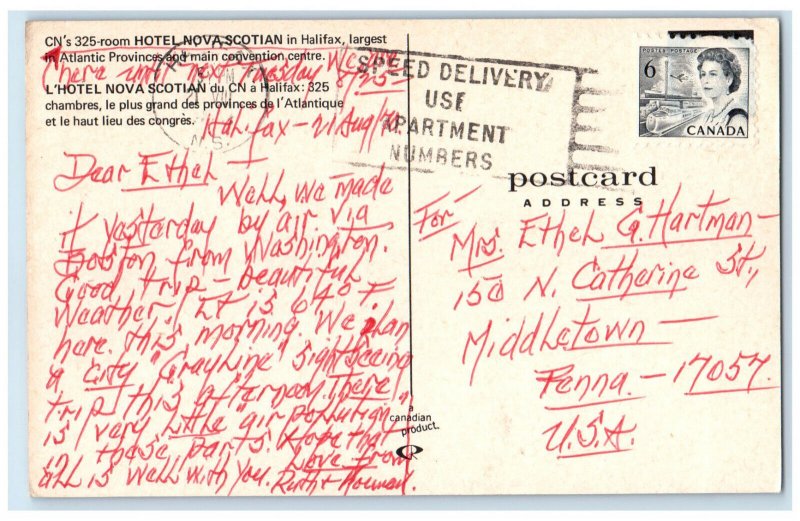 CN's 325-room HOTEL NOVA SCOTIAN in Halifax, largest
in Atlantic Provinces and main convention centre.
(here until next Tuesday Wed. 8/25)
L'HOTEL NOVA SCOTIAN du CN à Halifax: 325
chambres, le plus grand des provinces de l'Atlantique
et le haut lieu des congrès.
Halifax - 21 Aug/
Dear Ethel -
Well, we made
it yesterday by air via
Boston from Washington.
Good trip - beautiful
weather. It is 64° F.
here this morning. We plan
a City "Grayline" sightseeing
trip this afternoon. There
is very little "air pollution"
in these parts. Hope that
all is well with you. Love from
Ruth + Norman.
N.S.
SPEED DELIVERY
USE
APARTMENT
NUMBERS
POSTES POSTAGE
6
CANADA
postcard
ADDRESS
For -
Mrs. Ethel G. Hartman -
150 N. Catherine St.,
Middletown -
Penna. - 17057.
U.S.A.
a
canadian
product.